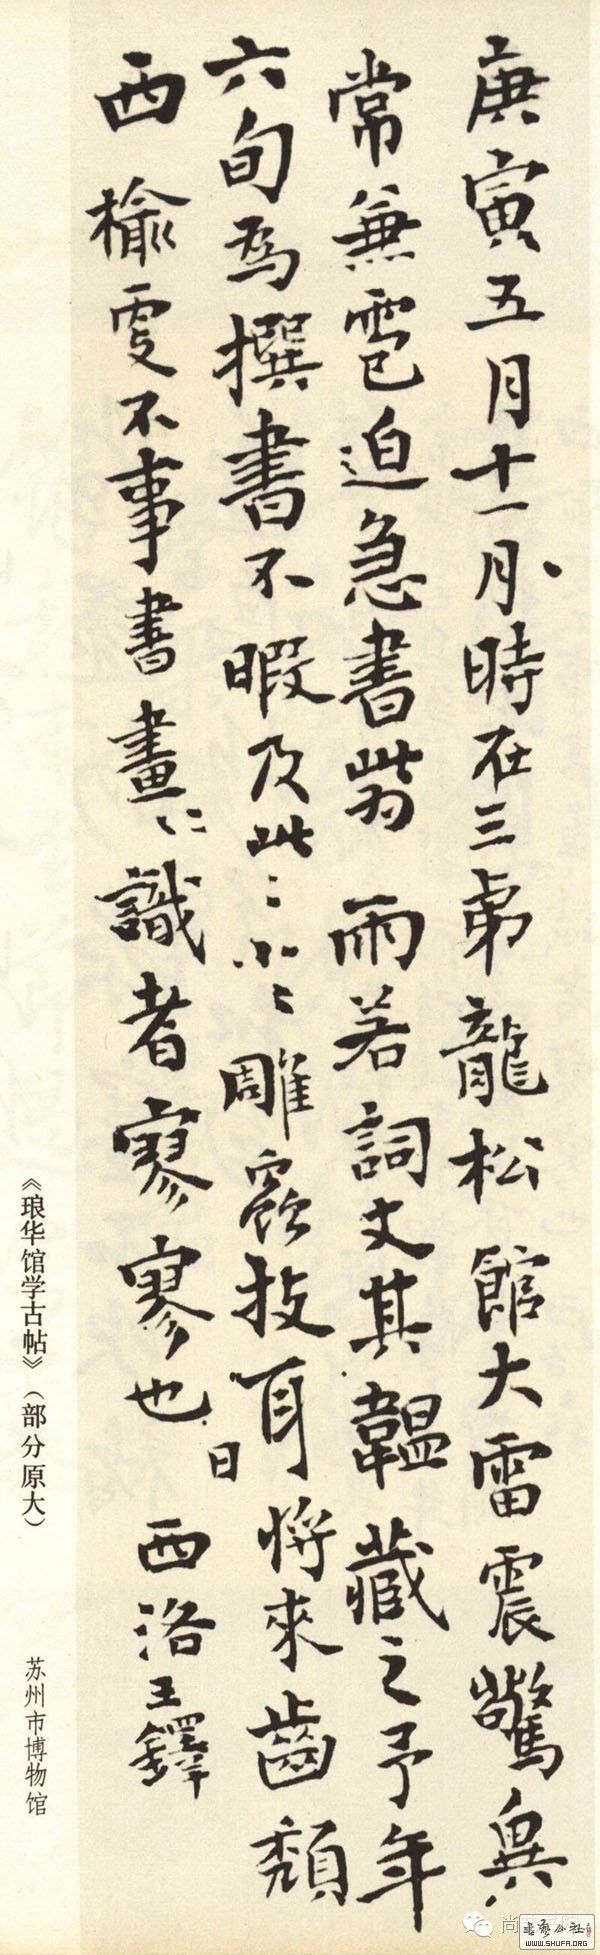 庚寅五月十一月時在三弟龍松館大雷震驚異
常兼雹迫急書此為雨若詞文其韞藏之予年
六旬為撰書不暇及此二小二雕蟲技耳日將來齒頹
西榆更不事書畫二識者寥寥也西洛王鐸
《琅华馆学古帖》（部分原大）
苏州市博物馆
WWW.SHUFA.ORG